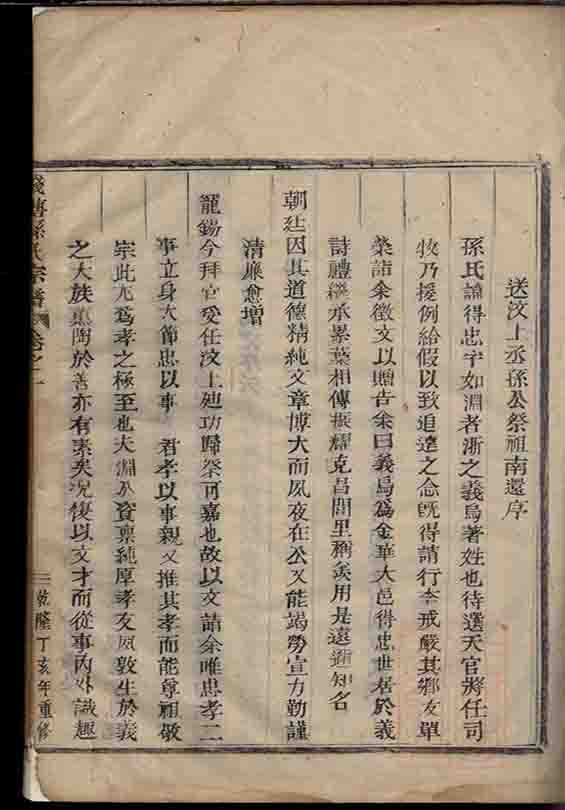 送汶上丞孫公祭祖南還序
孫氏諱得忠字如淵者浙之義烏著姓也待選天官將任司
牧乃援例給假以致追遠之念既得請行李戒嚴其鄉友單
榮詣余徵文以贈告余曰義烏為金華大邑得忠世居於義
詩禮繼承累葉相傳振耀克昌閭里稱羨用是遠邇知名
朝廷因其道德精純文章博大而夙夜在公又能竭勞宣力勤謹
清廉愈增
寵錫今拜官受任汶上廸功歸祭可嘉也故以文請余唯忠孝二
事立身大節忠以事 君孝以事親又推其孝而能尊祖敬
宗此尤爲孝之極至也夫淵公資稟純厚孝友夙敦生於義
之大族薰陶於善亦有素矣況復以文才而從事內外識趣
孫氏宗譜 卷之一
三 乾隆丁亥年重修